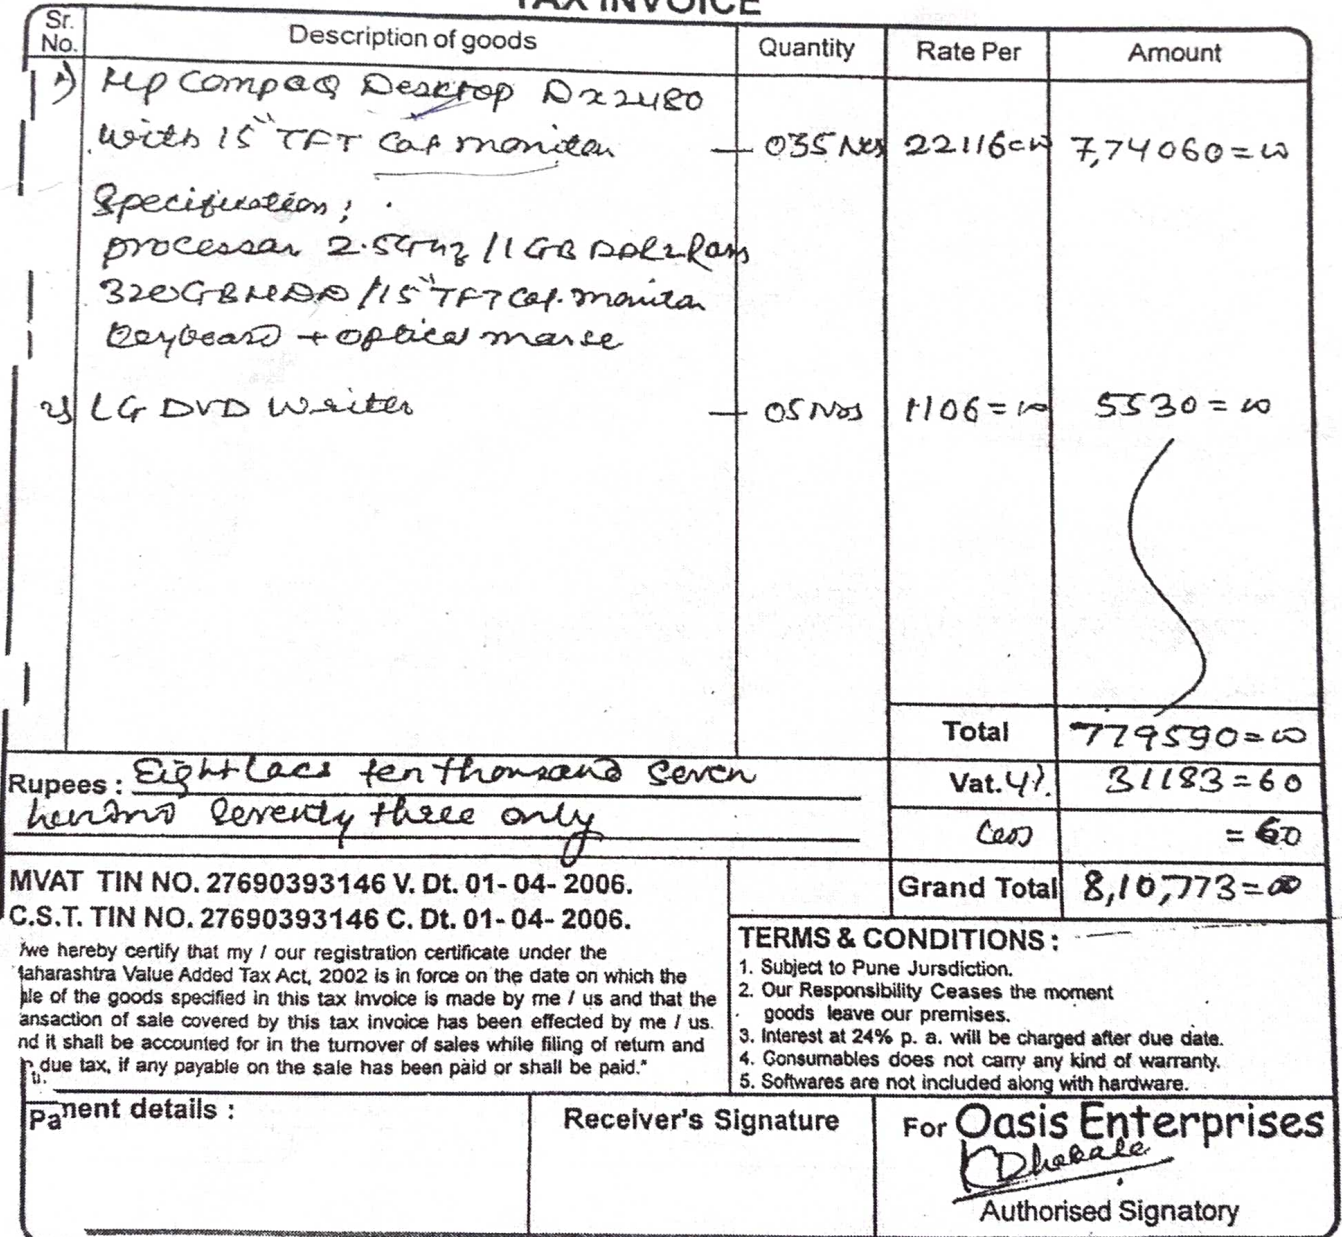 TAX INVOICE
Sr. No. Description of goods Quantity Rate Per Amount
1) Hp Compaq Desktop Dx2480
with 15" TFT Cap monitor — 035 Nos 22116=00 7,74060=00
Specification:
processor 2.5Ghz /1GB DDR2 Ram
320GB HDD /15" TFT Cap. monitor
Keyboard + optical mouse
2) LG DVD Writer — 05 Nos 1106=00 5530=00
Total 779590=00
Rupees : Eight Lacs ten thousand Seven Vat. 4%. 31183=60
hundred Seventy three only Cess =60
MVAT TIN NO. 27690393146 V. Dt. 01- 04- 2006. Grand Total 8,10,773=00
C.S.T. TIN NO. 27690393146 C. Dt. 01- 04- 2006.
/we hereby certify that my / our registration certificate under the
aharashtra Value Added Tax Act, 2002 is in force on the date on which the
le of the goods specified in this tax Invoice is made by me / us and that the
ansaction of sale covered by this tax invoice has been effected by me / us.
nd it shall be accounted for in the turnover of sales while filing of return and
due tax, if any payable on the sale has been paid or shall be paid."
TERMS & CONDITIONS :
1. Subject to Pune Jursdiction.
2. Our Responsibility Ceases the moment
goods leave our premises.
3. Interest at 24% p. a. will be charged after due date.
4. Consumables does not carry any kind of warranty.
5. Softwares are not included along with hardware.
Pa ment details : Receiver's Signature For Oasis Enterprises
Dhebale
Authorised Signatory